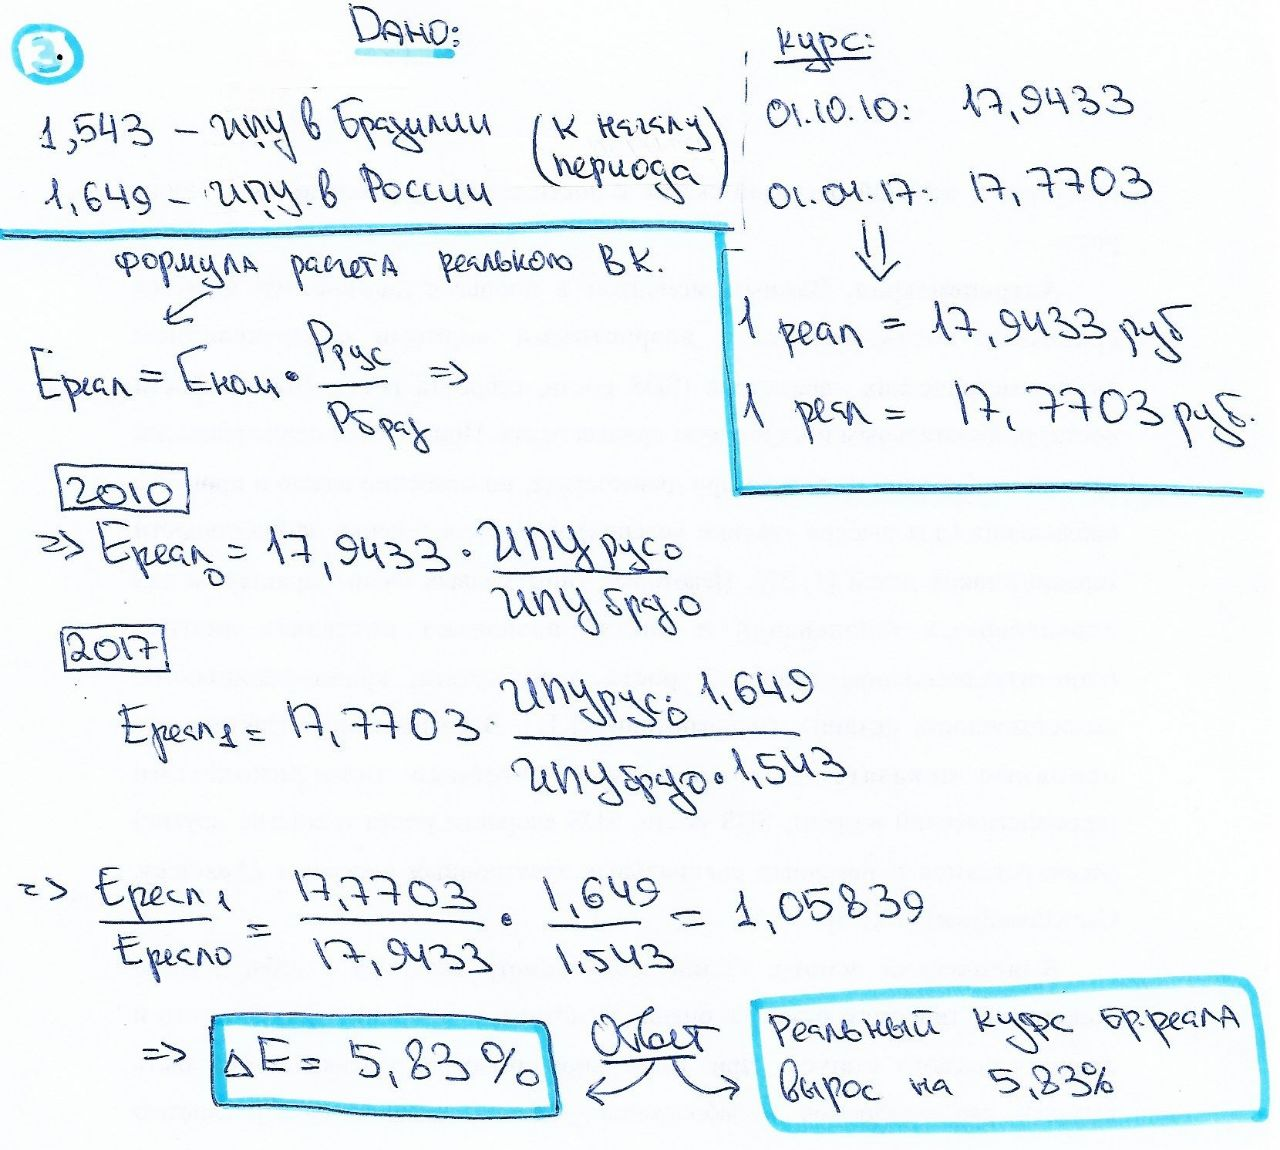 3.
Дано:
1,543 – ИПЦ в Бразилии (к началу периода)
1,649 – ИПЦ в России
курс:
01.10.10: 17,9433
01.04.17: 17,7703
⇓
1 реал = 17,9433 руб
1 реал = 17,7703 руб.
формула расчета реального ВК.
Ереал = Еном · Ррус / Рбраз =>
2010
=> Ереал0 = 17,9433 · ИПЦ рус0 / ИПЦ браз.0
2017
Ереал1 = 17,7703 · ИПЦ рус0 · 1,649 / ИПЦ браз0 · 1,543
=> Ереал1 / Ереал0 = 17,7703 / 17,9433 · 1,649 / 1,543 = 1,05839
=> ΔE = 5,83%
Ответ
Реальный курс бр.реала
вырос на 5,83%